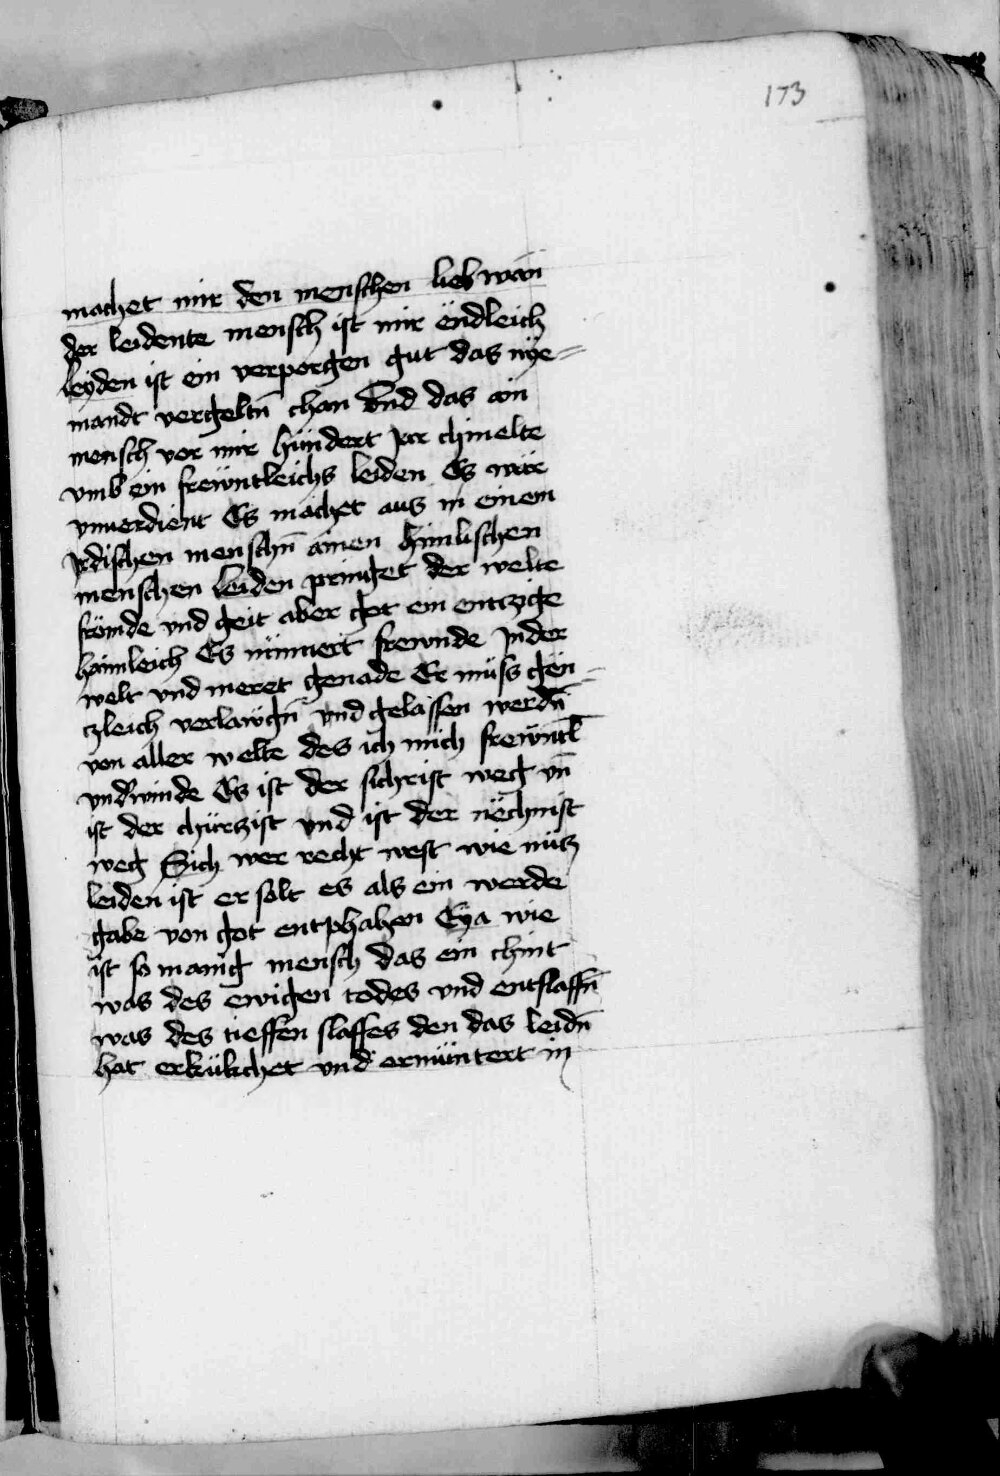 173
machet mir den menschen lieb wan̄
der leidente mensch ist mir ëndleich
leyden ist ein verporgen gut das nÿe=
mandt vergeltn̄ chan Vnd das ain
mensch vor mir hündert Jar chnielte
vmb ein frewntleichs leiden Es wär
vnuerdient Es machet aus in einem
Jrdischen menschn̄ ainen himlischen
menschen leiden pringet der welte
frömde vnd geit aber got ein entczige
haimleich Es minnert frewnde Jn der
welt vnd meret genade Er müss gën=
czleich verlawgn̄ vnd gelassen werdn̄
von aller welte des ich mich frewntl̄
vnd'winde Es ist der sichrist weg vn̄
ist der chürczist vnd ist der nëchnist
weg Sich wer recht west wie nücz
leiden ist er solt es als ein werde
gabe von got entphahen Eya wie
ist so manig mensch das ein chint
was des ewigen todes vnd entslaffn̄
was des tieffen slaffes den das leidn̄
hat erkükchet vnd ermüntert in